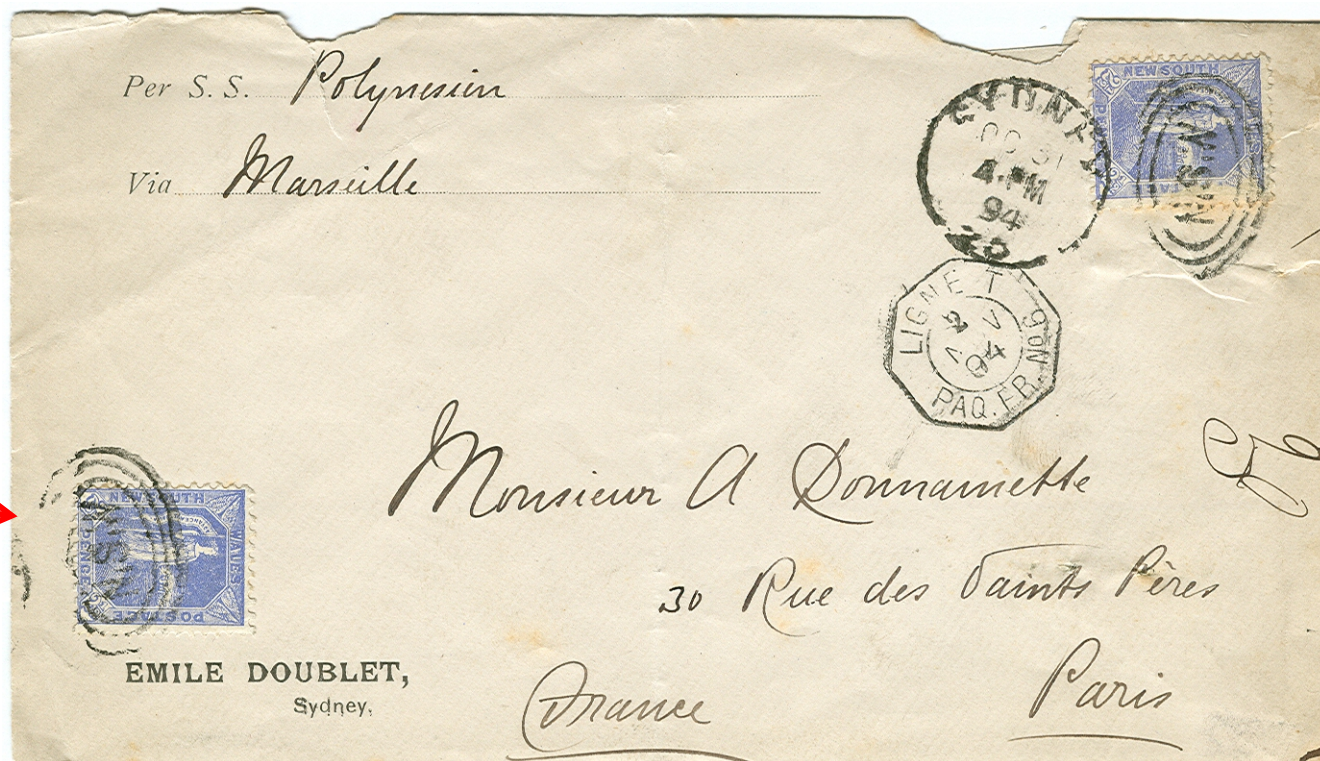 Per S. S. Polynesien
Via Marseille
NEW SOUTH
SYDNEY
4. PM
94
N.S.W
LIGNE T
PAQ. FR. No 6
94
Monsieur A Donnamette
30 Rue des Saints Pères
Paris
France
NEW SOUTH
WALES
POSTAGE
PENCE
N.S.W
EMILE DOUBLET,
Sydney.